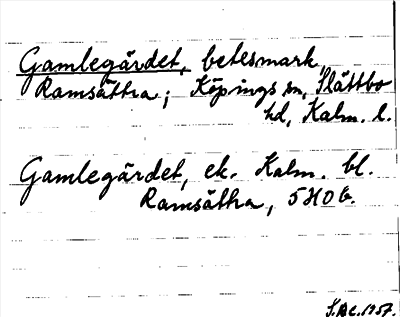 Gamlegärdet, betesmark,
Ramsättra; Köpings sn, Slättbo
hd, Kalm. l.
Gamlegärdet, ek. Kalm. bl.
Ramsättra, 5H0b.
1957.